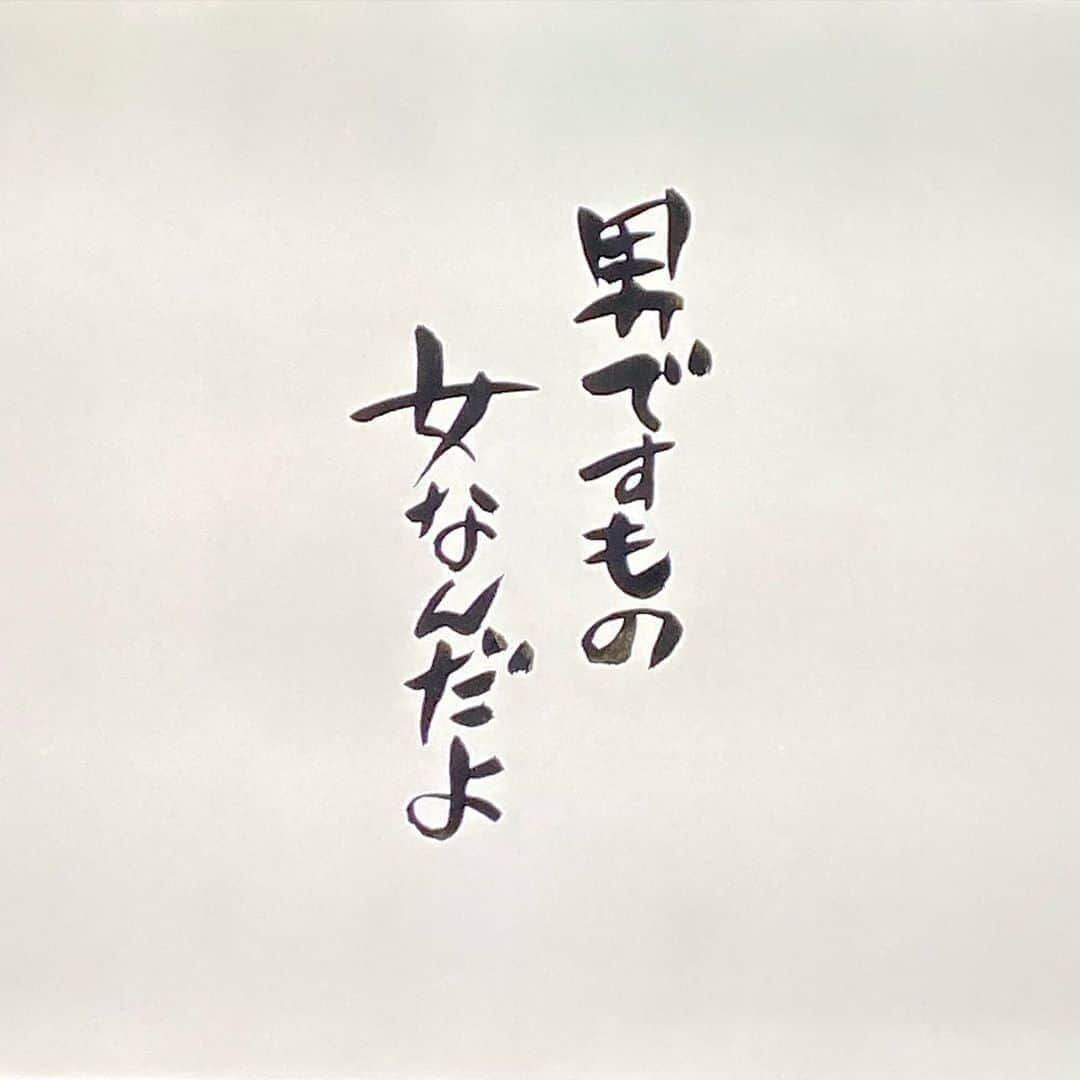 男ですもの
女なんだよ